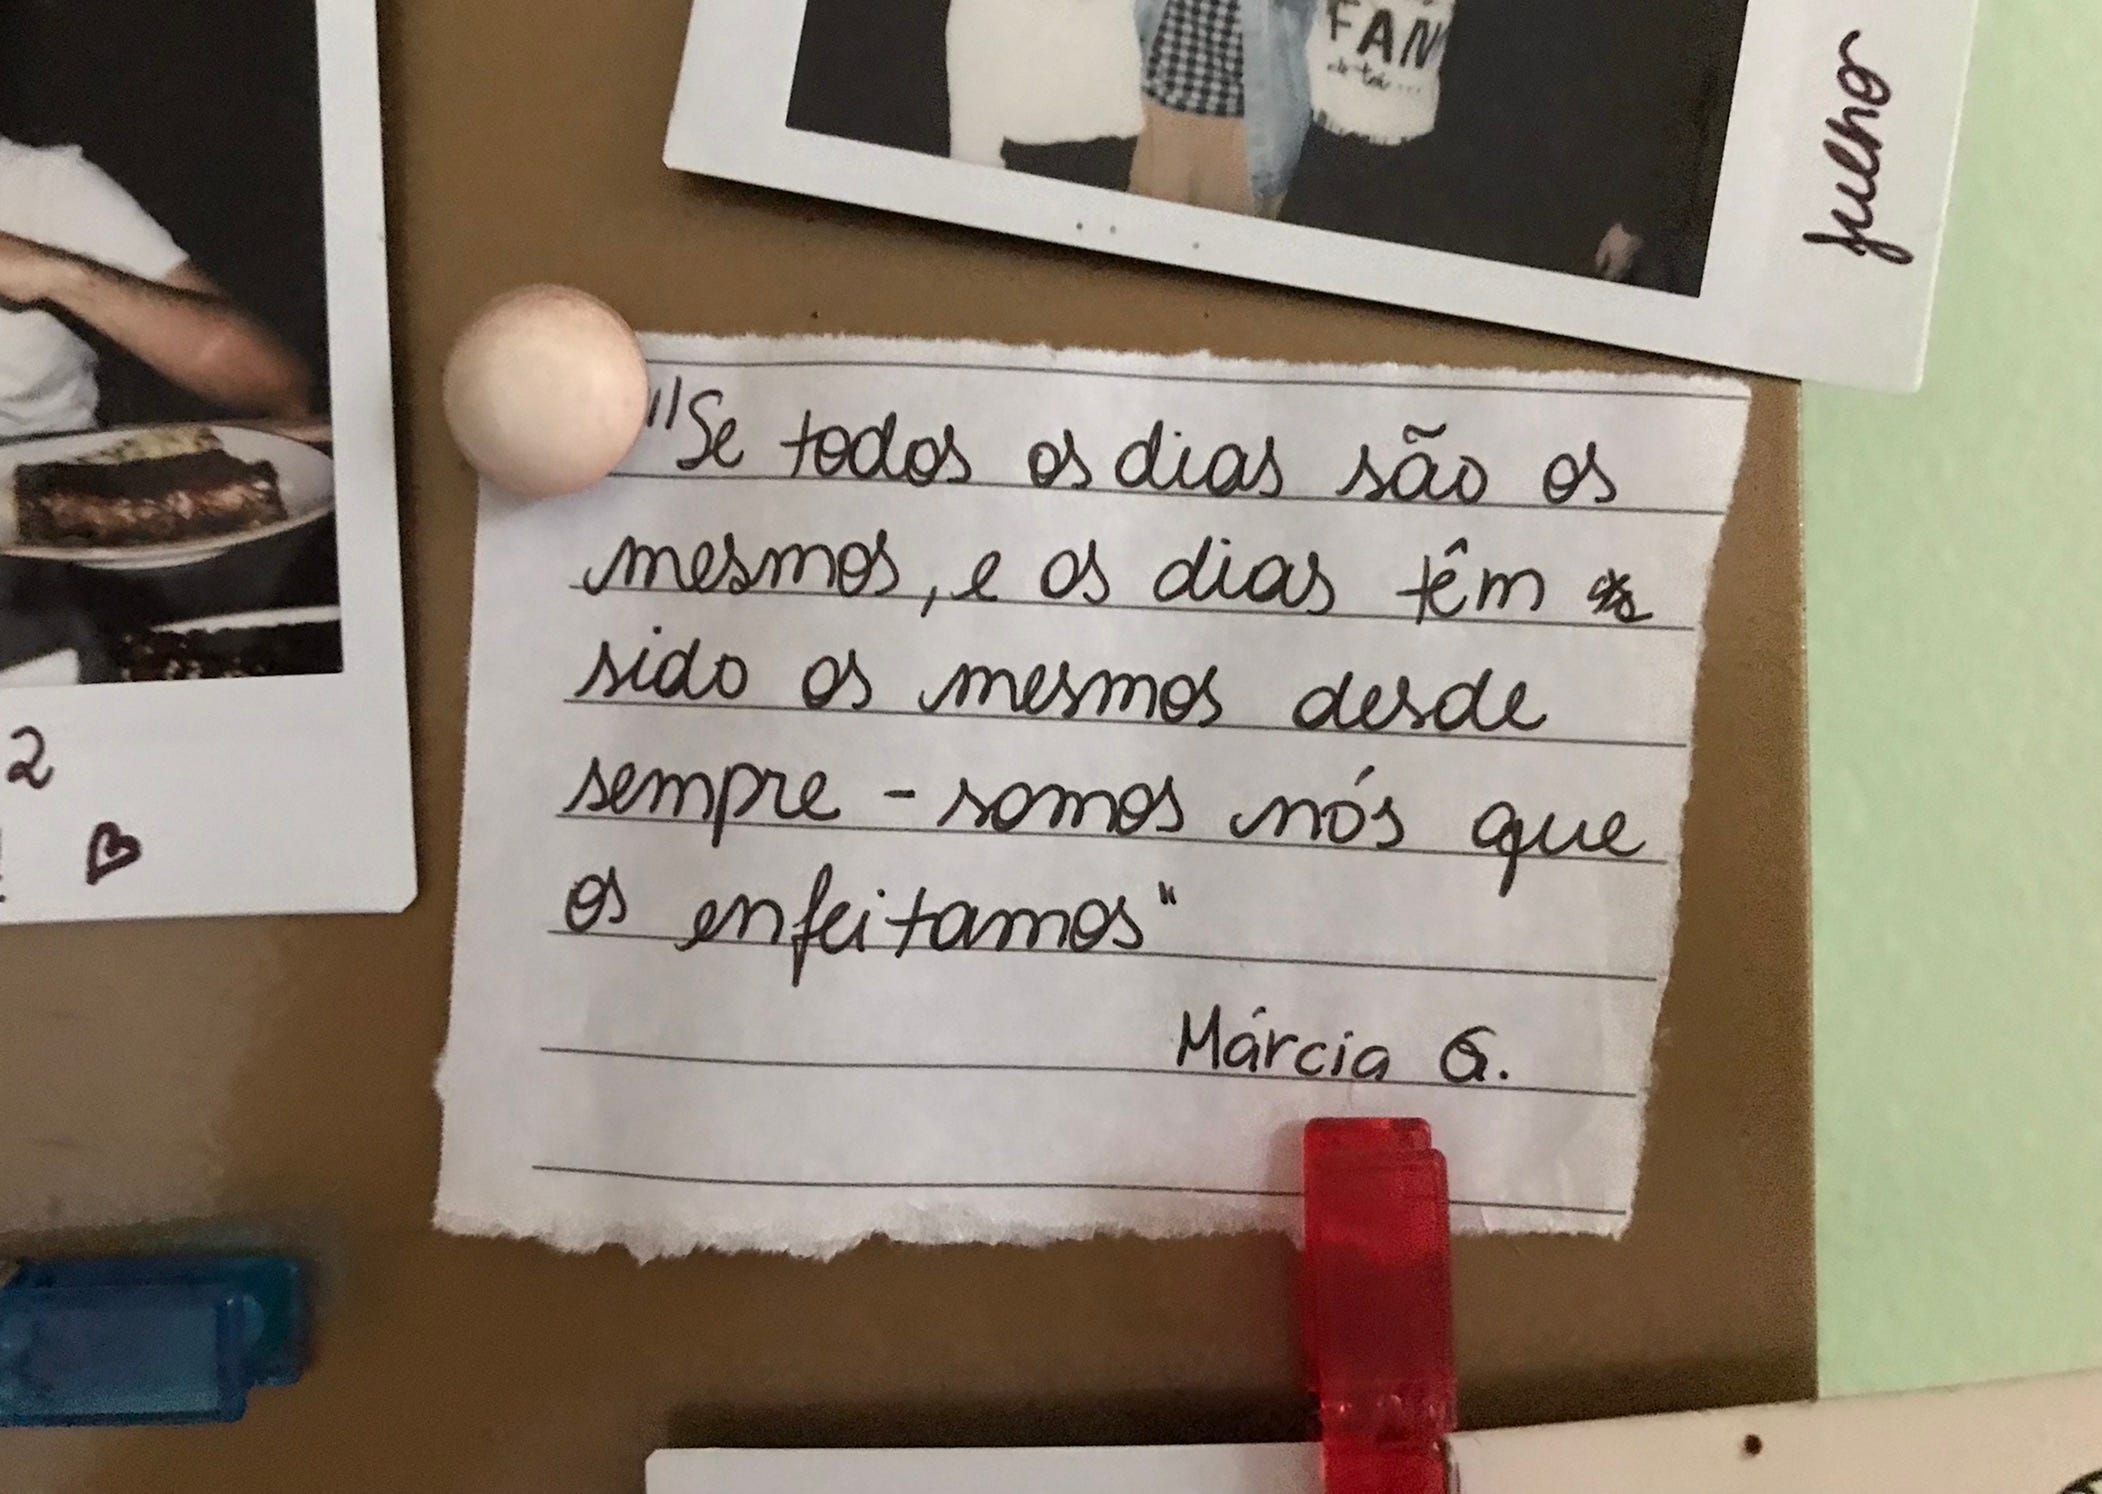 FAN
de ti...
julho
"Se todos os dias são os
mesmos, e os dias têm
sido os mesmos desde
sempre - somos nós que
os enfeitamos"
Márcia G.
2